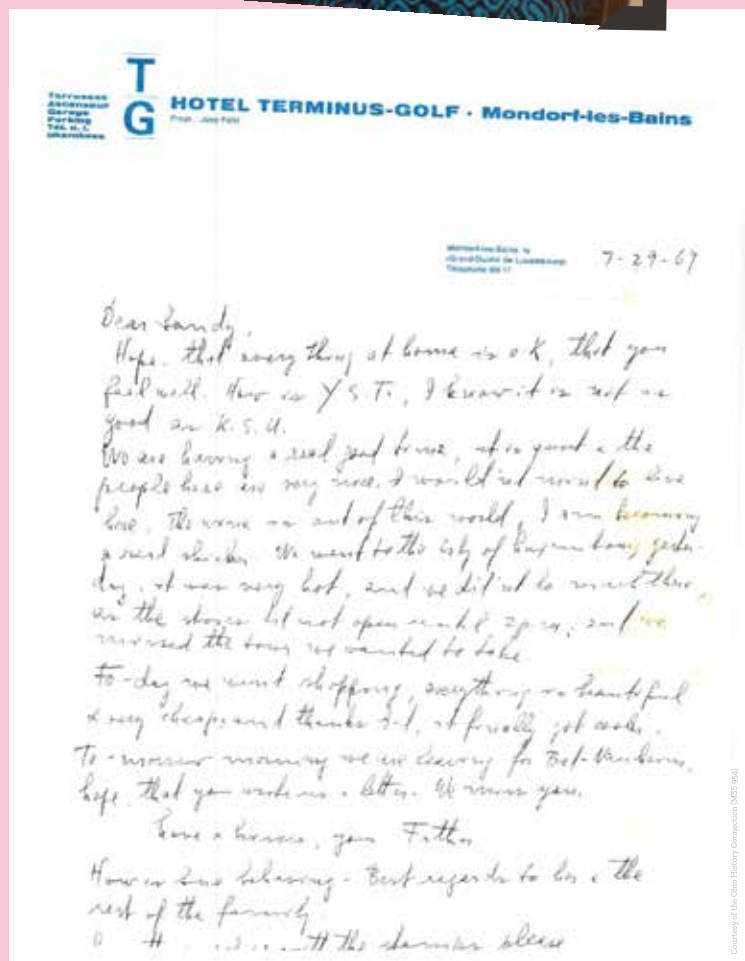 T
G
Terrasses
Ascenseur
Garage
Parking
HOTEL TERMINUS-GOLF · Mondorf-les-Bains
Mondorf-les-Bains, le
7-29-69
Dear Sandy,
Hope, that everything at home is o K, that you
feel well. How is Y S.T., I know it is not as
good as K.S.U.
We are having a real good time, it is quiet & the
people here are very nice. I would not mind to live
here. The wine is out of this world, I am becoming
a real We went to the city of Luxembourg yester-
day, it was very hot, and we did not do much there,
as the stores did not open until 2 p.m., and we
missed the tour we wanted to take.
To-day we went shopping, everything is beautiful
& very cheap and it finally got cooler.
To-morrow morning we are leaving for
hope, that you write us a letter. We miss you.
Love & kisses, your Father
How is behaving. Best regards to her & the
rest of the family
the please
Courtesy of the Ohio History Connection (MSS 954)